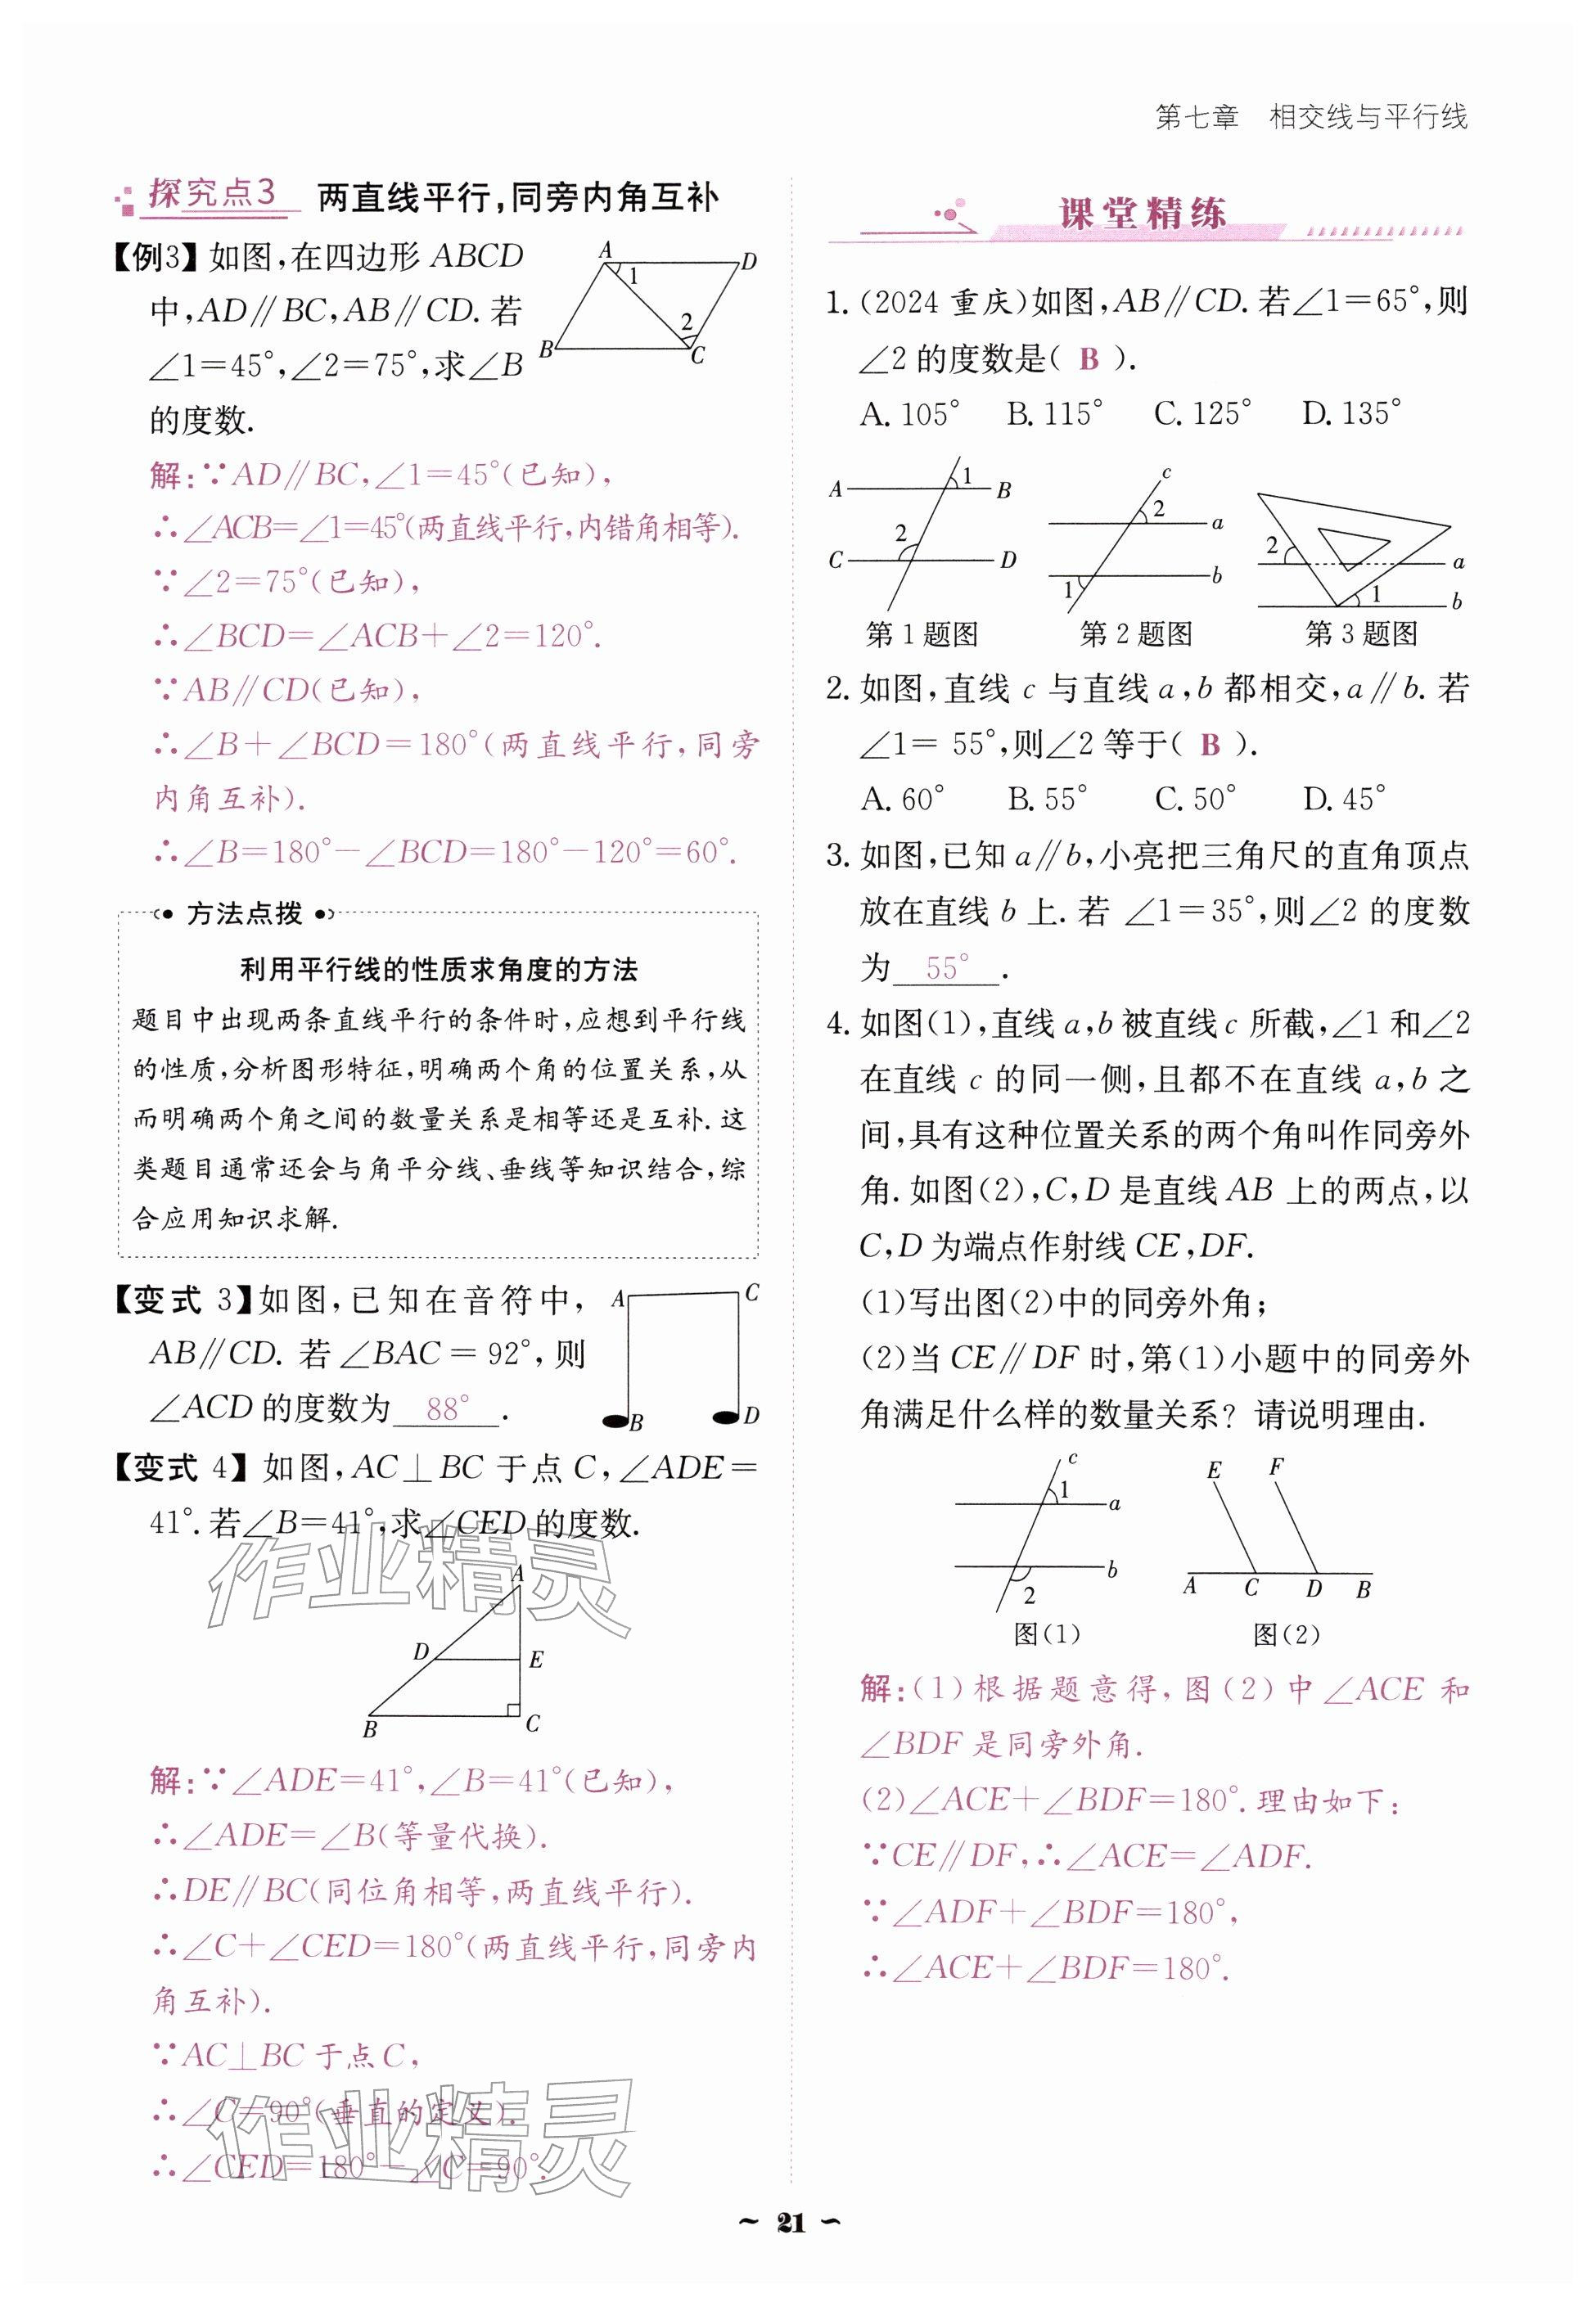 第七章 相交线与平行线
探究点3 两直线平行,同旁内角互补
【例3】如图,在四边形 ABCD
中,AD∥BC,AB∥CD. 若
∠1=45°,∠2=75°,求∠B
的度数.
A
D
1
2
B
C
解:∵AD∥BC,∠1=45°(已知),
∴∠ACB=∠1=45°(两直线平行,内错角相等).
∵∠2=75°(已知),
∴∠BCD=∠ACB+∠2=120°.
∵AB∥CD(已知),
∴∠B+∠BCD=180°(两直线平行,同旁
内角互补).
∴∠B=180°-∠BCD=180°-120°=60°.
方法点拨
利用平行线的性质求角度的方法
题目中出现两条直线平行的条件时,应想到平行线
的性质,分析图形特征,明确两个角的位置关系,从
而明确两个角之间的数量关系是相等还是互补. 这
类题目通常还会与角平分线、垂线等知识结合,综
合应用知识求解.
【变式 3】如图,已知在音符中,
AB∥CD. 若∠BAC=92°,则
∠ACD 的度数为 88° .
A
C
B
D
【变式 4】如图,AC⊥BC 于点 C,∠ADE=
41°. 若∠B=41°,求∠CED 的度数.
作业精灵
A
D
E
B
C
解:∵∠ADE=41°,∠B=41°(已知),
∴∠ADE=∠B(等量代换).
∴DE∥BC(同位角相等,两直线平行).
∴∠C+∠CED=180°(两直线平行,同旁内
角互补).
∵AC⊥BC 于点 C,
∴∠C=90°(垂直的定义).
∴∠CED=180°-∠C=90°.
作业精灵
课堂精练
1. (2024 重庆)如图,AB∥CD. 若∠1=65°,则
∠2 的度数是( B ).
A. 105° B. 115° C. 125° D. 135°
A
1
B
2
C
D
第 1 题图
c
2
a
1
b
第 2 题图
2
a
1
b
第 3 题图
2. 如图,直线 c 与直线 a,b 都相交,a∥b. 若
∠1= 55°,则∠2 等于( B ).
A. 60° B. 55° C. 50° D. 45°
3. 如图,已知 a∥b,小亮把三角尺的直角顶点
放在直线 b 上. 若 ∠1=35°,则∠2 的度数
为 55° .
4. 如图(1),直线 a,b 被直线 c 所截,∠1 和∠2
在直线 c 的同一侧,且都不在直线 a,b 之
间,具有这种位置关系的两个角叫作同旁外
角. 如图(2),C,D 是直线 AB 上的两点,以
C,D 为端点作射线 CE,DF.
(1)写出图(2)中的同旁外角;
(2)当 CE∥DF 时,第(1)小题中的同旁外
角满足什么样的数量关系? 请说明理由.
c
1
a
b
2
图(1)
E F
A C D B
图(2)
解:(1)根据题意得,图(2)中∠ACE 和
∠BDF 是同旁外角.
(2)∠ACE+∠BDF=180°. 理由如下:
∵CE∥DF,∴∠ACE=∠ADF.
∵∠ADF+∠BDF=180°,
∴∠ACE+∠BDF=180°.
~ 21 ~